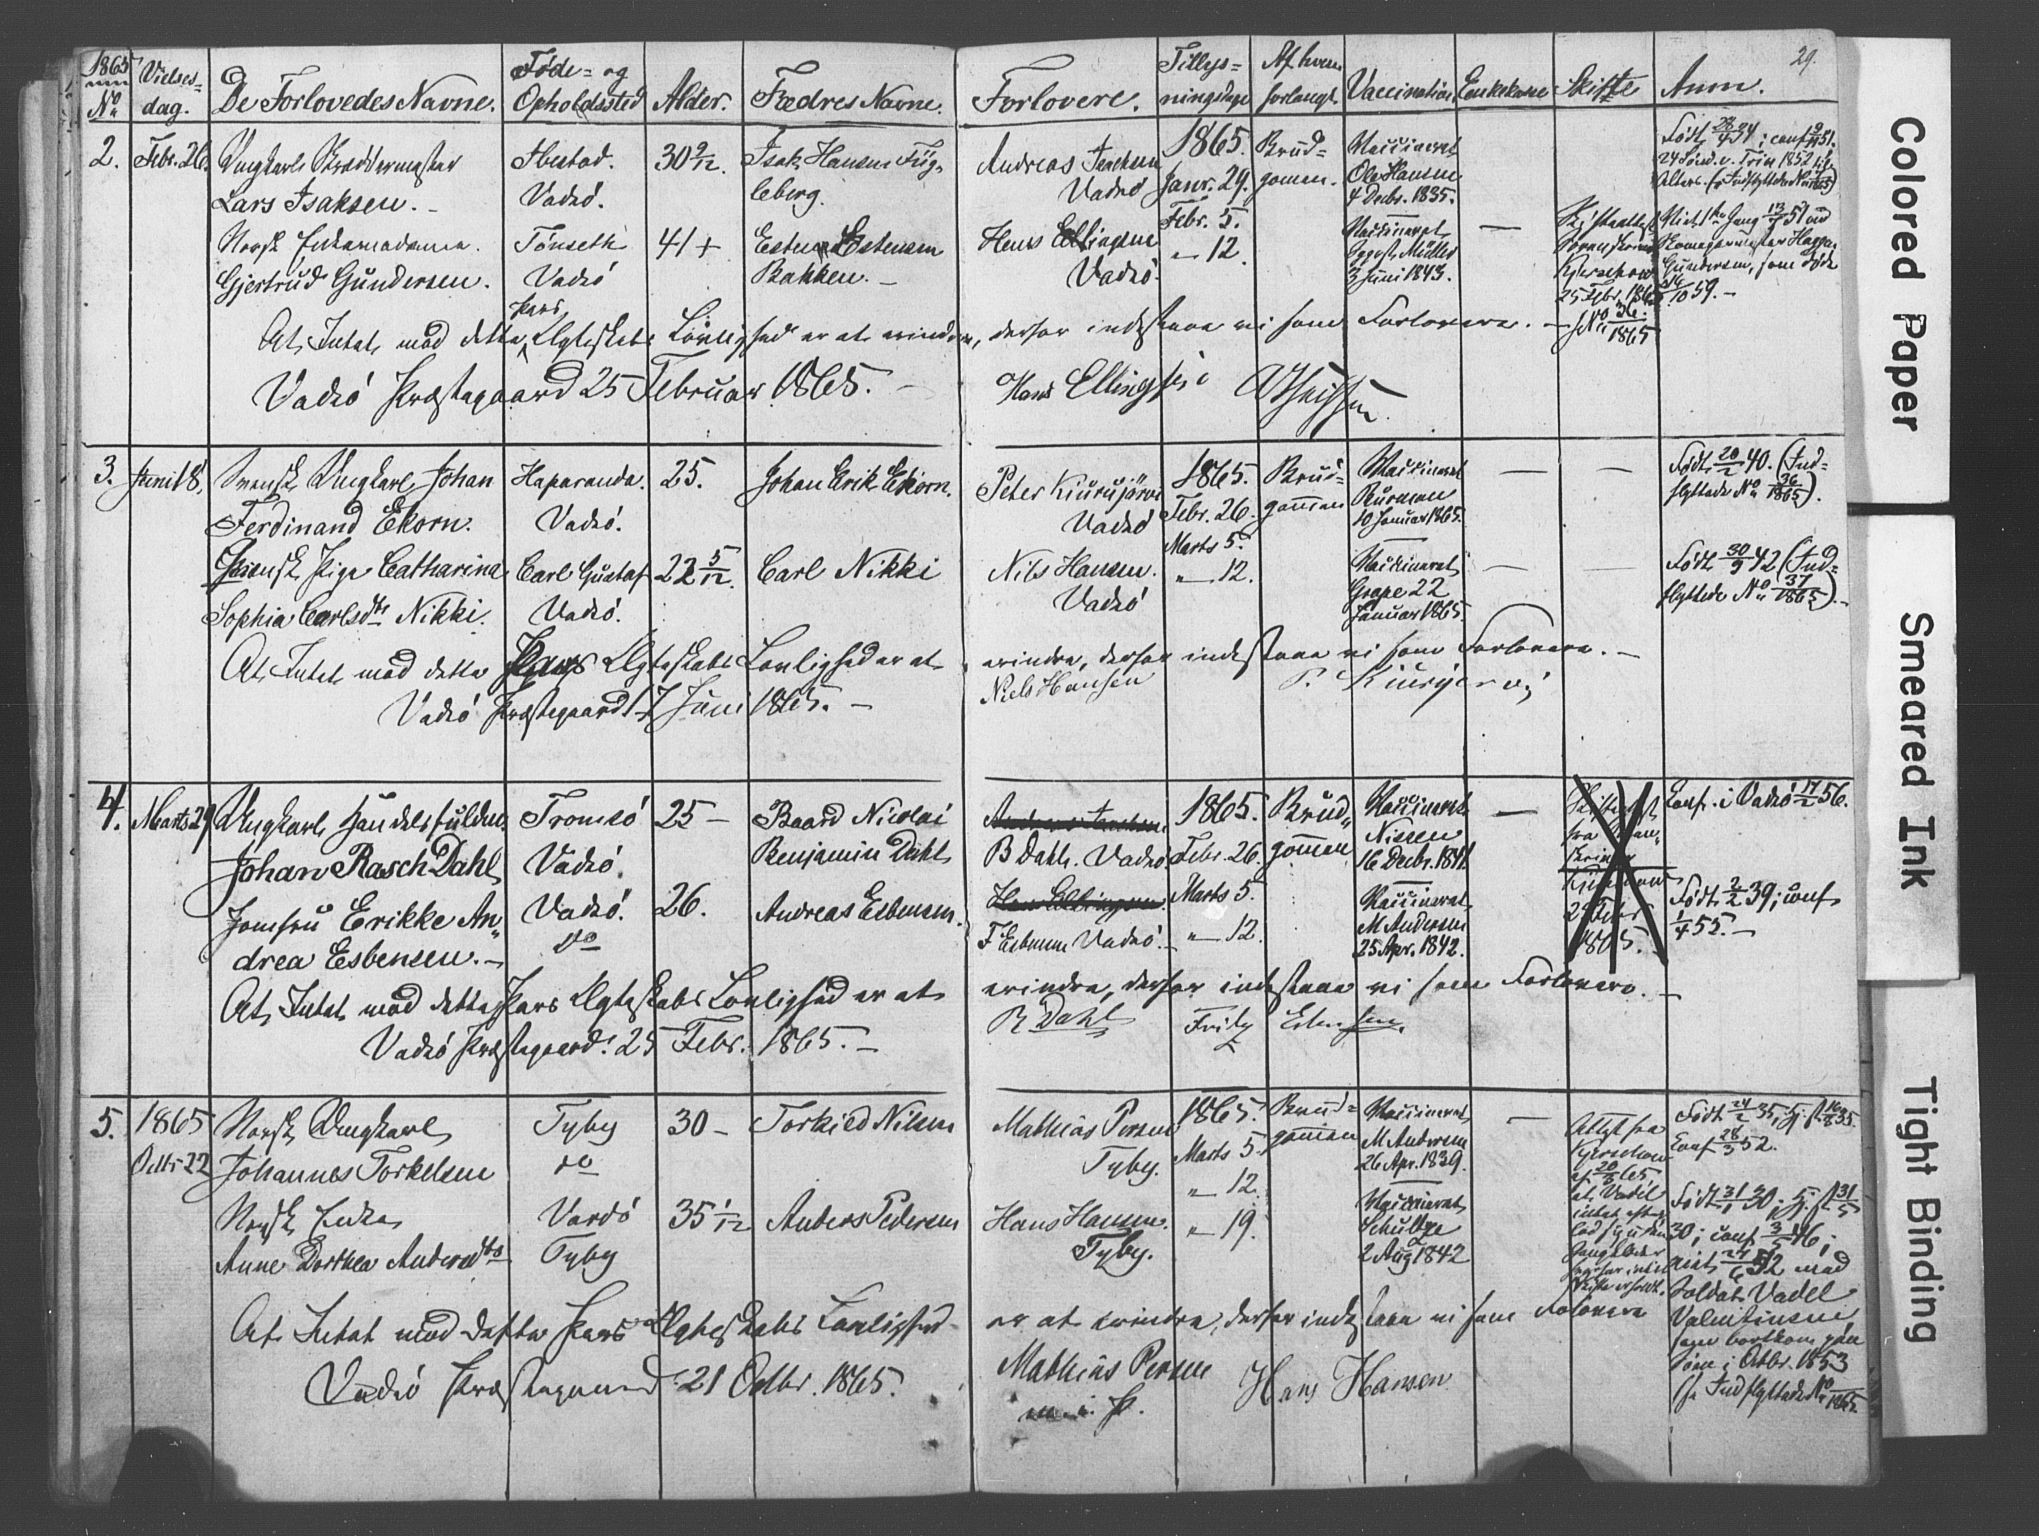 1865
No
Vielses-
dag.
De Forlovedes Navne.
Føde- og
Opholdssted
Alder.
Fædres Navne.
Forlovere.
Tillys-
ningsdage
Af hvem
forlangt.
Vaccination
Enkekasse
Skifte
Anm.
29.
2.
Febr. 26.
Ungkarl Skræddermester
Lars Isaksen. -
Norsk Enkemadame.
Gjertrud Gundersen.
Ibestad.
Vadsö.
Tönseth
Vadsö
30 9/12.
41 +
Isak Hansen Fug-
leberg.
Esten Estensen
Bakken. -
Andreas
Vadsö
Hans Ellingsen
Vadsö.
1865.
Janr. 29.
Febr. 5.
" 12.
Brud-
gomen.
Vaccineret
Ole Hansen
4 Decbr. 1835.
Vaccineret
Müller
3 Juni 1843.
—
25 Febr. 1865
1865
Født
24 Sönd. e. Trin 1852
Gundersen, som døde
/10 59. -
At Intet mod dette Pars Ægteskabs Lovlighed er at erindre, derfor indestaae vi som Forlovere. -
Vadsö Præstegaard 25 Februar 1865. -
Hans Ellingsen
3.
Juni 18.
Svensk Ungkarl Johan
Ferdinand Ekorn.
Svensk Pige Catharina
Sophia Carlsdtr Nikki.
Haparanda.
Vadsö.
Carl Gustaf
Vadsö.
25.
22 5/12.
Johan Erik Ekorn.
Carl Nikki
Peter Kiurujärvi
Vadsö
Nils Hansen.
Vadsö
1865.
Febr. 26.
Marts 5.
" 12.
Brud-
gomen
Vaccineret
Burman
10 Januar 1865.
Vaccineret
Grape 22
Januar 1865.
— —
— —
Født 20/2 40. (Ind-
flyttede No 36/1865).
Født 30/9 42 (Ind-
flyttede No 37/1865). -
At Intet mod dette Pars Ægteskabs Lovlighed er at erindre, derfor indestaae vi som Forlovere. -
Vadsö Præstegaard 17 Juni 1865. -
Niels Hansen
4.
Marts 29
Ungkarl Handelsfuldm.
Johan Rasch Dahl
Jomfru Erikke An-
drea Esbensen. -
Tromsö
Vadsö.
Vadsö.
do
25 -
26.
Baard Nicolai
Benjamin Dahl
Andreas Esbensen.
B Dahl. Vadsö
Hans Ellingsen.
F Esbensen Vadsö. -
1865.
Febr. 26.
Marts 5.
" 12.
Brud-
gomen
Vaccineret
Nissen
16 Decbr. 1841.
Vaccineret
M Andersen
25 Apr. 1842.
—
1865.
Conf. i Vadsö 17/2 56.
Født 2/2 39; conf
1/4 55. -
At Intet mod dette Pars Ægteskabs Lovlighed er at erindre, derfor indestaae vi som Forlovere. -
Vadsö Præstegaard 25 Febr. 1865. -
B Dahl Fritz Esbensen.
5.
1865
Octbr. 22
Norsk Ungkarl
Johannes Torkelsen
Norsk Enke
Anne Dorthea Andersdtr
Tyby
do
Vardö
Tyby
30 -
35 1/12
Torkied Nilsen
Anders Pedersen
Mathias Persen
Tyby.
Hans Hansen.
Tyby.
1865.
Marts 5.
" 12.
" 19.
Brud-
gomen
Vaccineret
M Andersen
26 Apr. 1839.
Vaccineret
Schultze
2 Aug 1842
—
Attest fra
20/3 65,
at Vadel
intet efter-
Født 24/2 35; hj.
Conf 28/3 52.
30; conf 3/5 46;
med
Soldat Vadel
Valentinsen,
som bortkom paa
Søen i Octbr. 1853
(se Indflyttede No
1865.
At Intet mod dette Pars Ægteskabs Lovlighed er at erindre, derfor indestaae vi som Forlovere
Vadsö Præstegaard 21 Octbr. 1865.
Mathias Persen
m. i. P.
Hans Hansen
Colored Paper
Smeared Ink
Tight Binding